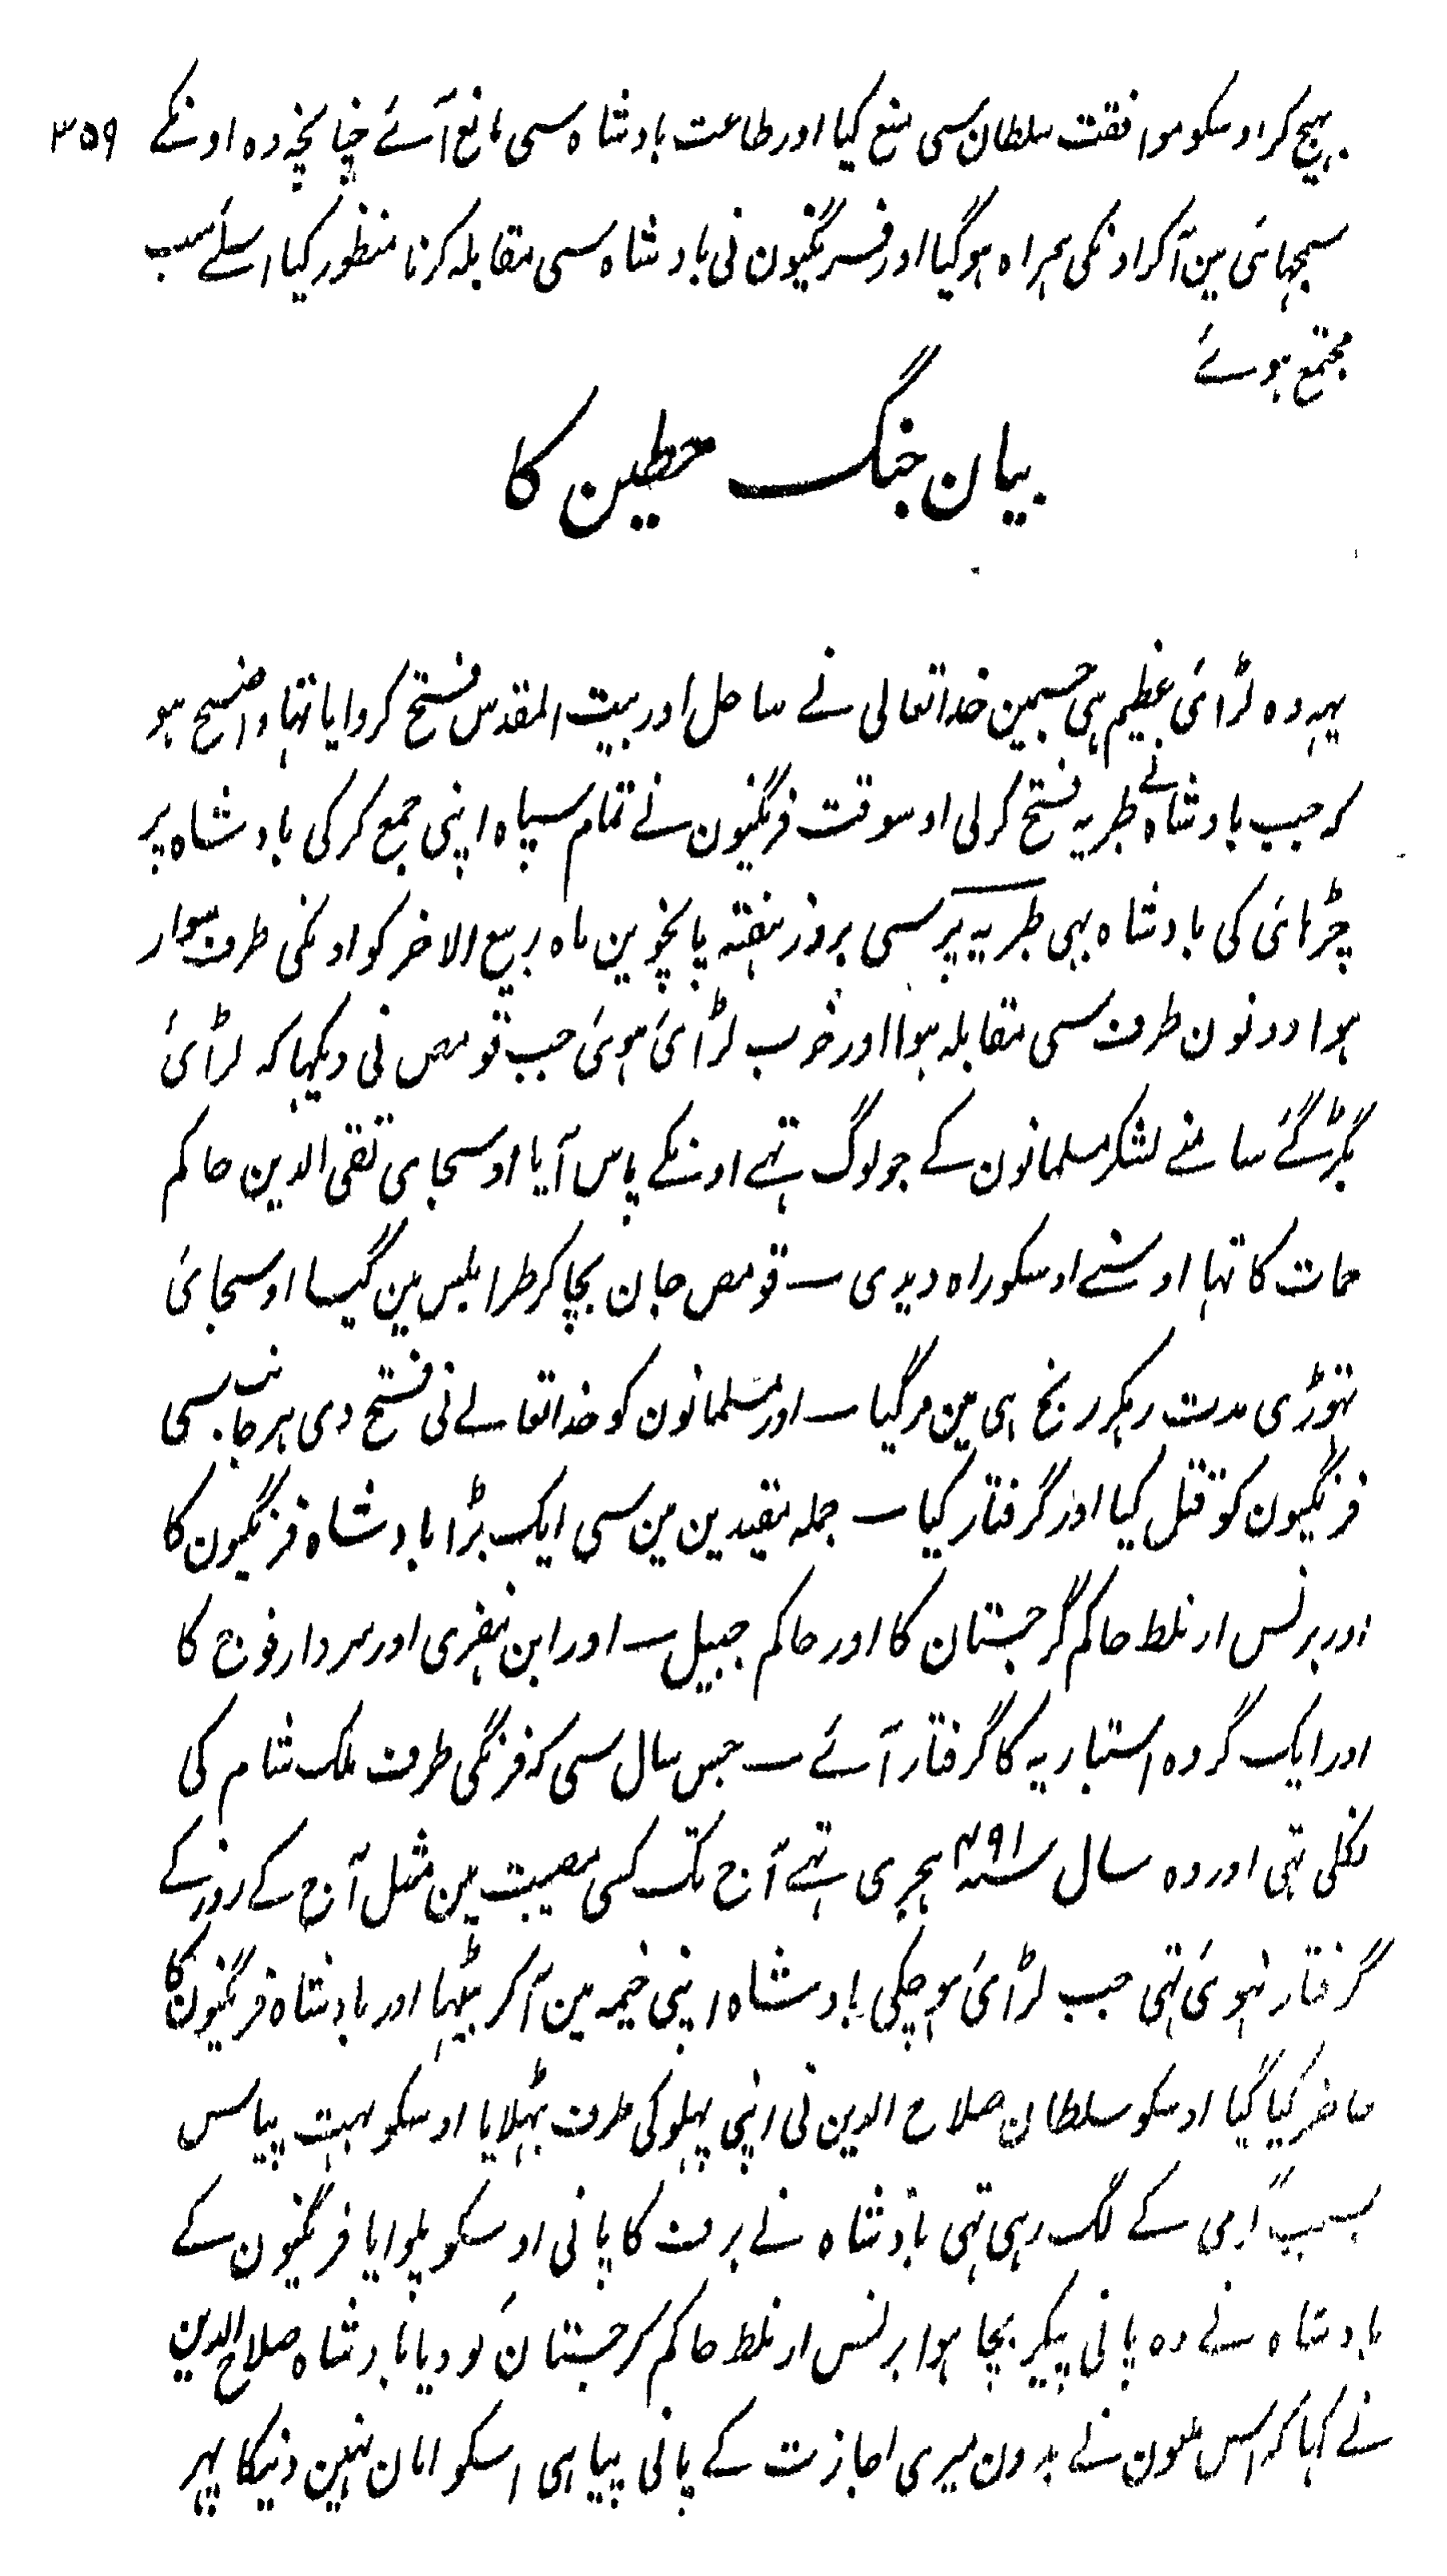 بہیج کر اوسکو موافقت سلطان سی منع کیا اور طاعت بادشاہ سی مانع آئے چنانچہ وہ اونکے ۳۵۹
سمجہانی مین آکر اونکی ہمراہ ہوگیا اور فرنگیون نی بادشاہ سی مقابلہ کرنا منظور کیا اسلئے سب
مجتمع ہوئے
بیان جنگ حطین کا
یہہ وہ لڑائی عظیم ہی جسمین خداتعالی نے ساحل اور بیت المقدس فتح کروایا تہا واضح ہو
کہ جب بادشاہ نے طبریہ فتح کرلی اوسوقت فرنگیون نے تمام سپاہ اپنی جمع کرکی بادشاہ پر
چڑہائی کی بادشاہ بہی طبریہ پر سی بروز ہفتہ پانچوین ماہ ربیع الاخر کو اونکی طرف سوار
ہوا دونون طرف سی مقابلہ ہوا اور خوب لڑائی ہوئی جب قومص نی دیکہا کہ لڑائی
بگڑ گئے سامنے لشکر مسلمانون کے جو لوگ تہے اونکے پاس آیا اوسجای تقی الدین حاکم
حمات کا تہا اوسنے اوسکو راہ دیدی ۔ قومص جان بچا کر طرابلس مین گیا اوسجائی
تہوڑی مدت رہکر رنج ہی مین مرگیا ۔ اور مسلمانون کو خداتعالے نی فتح دی ہر جانب سی
فرنگیون کو قتل کیا اور گرفتار کیا ۔ جملہ مقیدین مین سی ایک بڑا بادشاہ فرنگیون کا
اور برنس ارنلط حاکم گرجستان کا اور حاکم جبیل ۔ اور ابن ہنفری اور سردار فوج کا
اور ایک گروہ استباریہ کا گرفتار آئے ۔ جس سال سی کہ فرنگی طرف ملک شام کی
نکلی تہی اور وہ سال سنہ ۴۹۱ ہجری تہے آج تک کسی مصیبت مین مثل آج کے روز کے
گرفتار نہوئی تہی جب لڑائی ہوچکی بادشاہ اپنی خیمہ مین آکر بیٹہا اور بادشاہ فرنگیون کا
حاضر کیا گیا اوسکو سلطان صلاح الدین نی اپنی پہلو کی طرف بٹہلایا اوسکو بہت پیاس
بسبب گرمی کے لگ رہی تہی بادشاہ نے برف کا پانی اوسکو پلوایا فرنگیون کے
بادشاہ نے وہ پانی پیکر بچا ہوا برنس ارنلط حاکم گرجستان کو دیا بادشاہ صلاح الدین
نے کہا کہ اس ملعون نے بدون میری اجازت کے پانی پیا ہی اسکو امان نہین دنیکا پہر